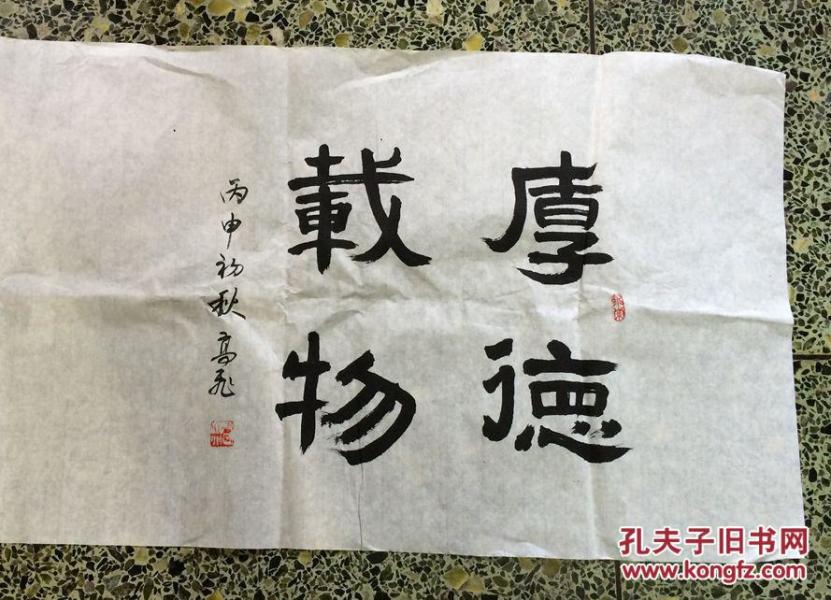 厚德
載物
丙申初秋高飛
孔夫子旧书网
www.kongfz.com